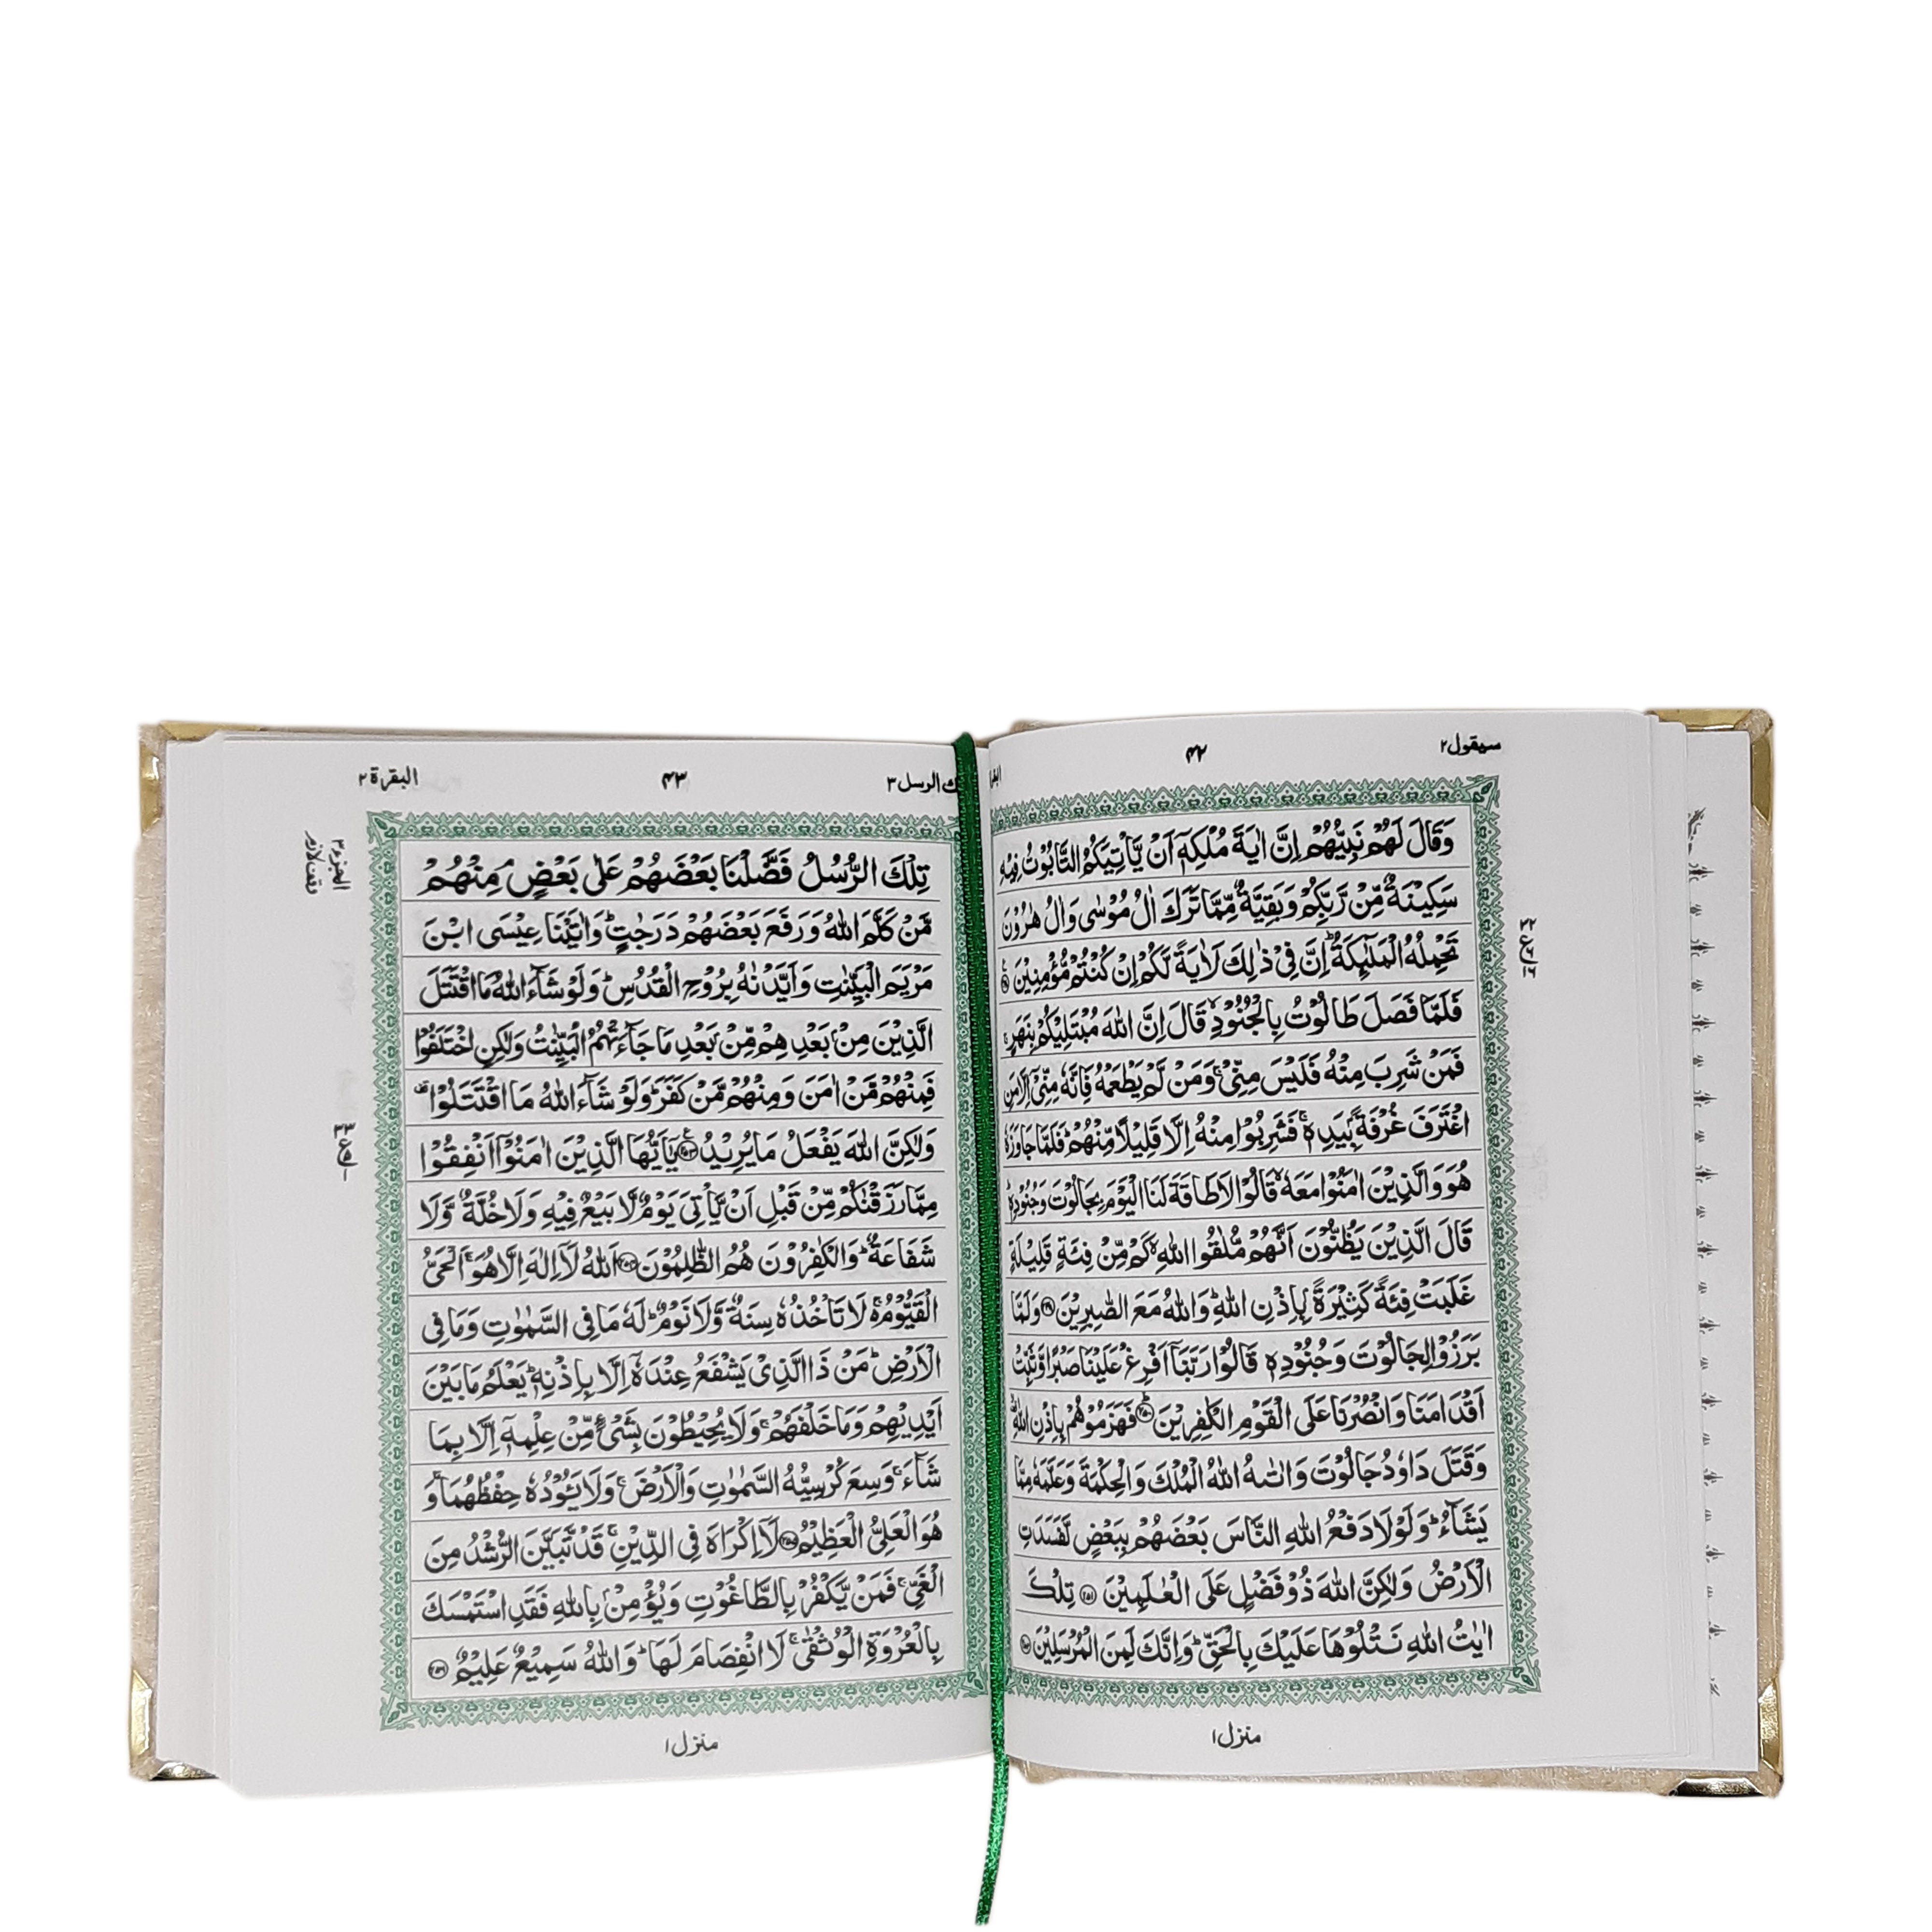 سيقول٢
٤٢
وَقَالَ لَهُمْ نَبِيُّهُمْ اِنَّ اٰيَةَ مُلْكِهٖۤ اَنْ يَّاْتِيَكُمُ التَّابُوْتُ فِيْهِ
سَكِيْنَةٌ مِّنْ رَّبِّكُمْ وَبَقِيَّةٌ مِّمَّا تَرَكَ اٰلُ مُوْسٰى وَاٰلُ هٰرُوْنَ
تَحْمِلُهُ الْمَلٰٓئِكَةُ ؕ اِنَّ فِيْ ذٰلِكَ لَاٰيَةً لَّكُمْ اِنْ كُنْتُمْ مُّؤْمِنِيْنَ
فَلَمَّا فَصَلَ طَالُوْتُ بِالْجُنُوْدِ ۙ قَالَ اِنَّ اللّٰهَ مُبْتَلِيْكُمْ بِنَهَرٍ ۚ
فَمَنْ شَرِبَ مِنْهُ فَلَيْسَ مِنِّيْ ۚ وَمَنْ لَّمْ يَطْعَمْهُ فَاِنَّهٗ مِنِّيْۤ اِلَّا مَنِ
اغْتَرَفَ غُرْفَةًۢ بِيَدِهٖ ۚ فَشَرِبُوْا مِنْهُ اِلَّا قَلِيْلًا مِّنْهُمْ ؕ فَلَمَّا جَاوَزَهٗ
هُوَ وَالَّذِيْنَ اٰمَنُوْا مَعَهٗ ۙ قَالُوْا لَا طَاقَةَ لَنَا الْيَوْمَ بِجَالُوْتَ وَجُنُوْدِهٖ ؕ
قَالَ الَّذِيْنَ يَظُنُّوْنَ اَنَّهُمْ مُّلٰقُوا اللّٰهِ ۙ كَمْ مِّنْ فِئَةٍ قَلِيْلَةٍ
غَلَبَتْ فِئَةً كَثِيْرَةًۢ بِاِذْنِ اللّٰهِ ؕ وَاللّٰهُ مَعَ الصّٰبِرِيْنَ ﴿٢٤٩﴾ وَلَمَّا
بَرَزُوْا لِجَالُوْتَ وَجُنُوْدِهٖ قَالُوْا رَبَّنَاۤ اَفْرِغْ عَلَيْنَا صَبْرًا وَّثَبِّتْ
اَقْدَامَنَا وَانْصُرْنَا عَلَى الْقَوْمِ الْكٰفِرِيْنَ ﴿٢٥٠﴾ؕ فَهَزَمُوْهُمْ بِاِذْنِ اللّٰهِ
وَقَتَلَ دَاوٗدُ جَالُوْتَ وَاٰتٰىهُ اللّٰهُ الْمُلْكَ وَالْحِكْمَةَ وَعَلَّمَهٗ مِمَّا
يَشَآءُ ؕ وَلَوْلَا دَفْعُ اللّٰهِ النَّاسَ بَعْضَهُمْ بِبَعْضٍ لَّفَسَدَتِ
الْاَرْضُ وَلٰكِنَّ اللّٰهَ ذُوْ فَضْلٍ عَلَى الْعٰلَمِيْنَ ﴿٢٥١﴾ تِلْكَ
اٰيٰتُ اللّٰهِ نَتْلُوْهَا عَلَيْكَ بِالْحَقِّ ؕ وَاِنَّكَ لَمِنَ الْمُرْسَلِيْنَ
منزل١
الرسل٣
٤٣
البقرة٢
تِلْكَ الرُّسُلُ فَضَّلْنَا بَعْضَهُمْ عَلٰى بَعْضٍ ۘ مِنْهُمْ
مَّنْ كَلَّمَ اللّٰهُ وَرَفَعَ بَعْضَهُمْ دَرَجٰتٍ ؕ وَاٰتَيْنَا عِيْسَى ابْنَ
مَرْيَمَ الْبَيِّنٰتِ وَاَيَّدْنٰهُ بِرُوْحِ الْقُدُسِ ؕ وَلَوْ شَآءَ اللّٰهُ مَا اقْتَتَلَ
الَّذِيْنَ مِنْۢ بَعْدِهِمْ مِّنْۢ بَعْدِ مَا جَآءَتْهُمُ الْبَيِّنٰتُ وَلٰكِنِ اخْتَلَفُوْا
فَمِنْهُمْ مَّنْ اٰمَنَ وَمِنْهُمْ مَّنْ كَفَرَ ؕ وَلَوْ شَآءَ اللّٰهُ مَا اقْتَتَلُوْا
وَلٰكِنَّ اللّٰهَ يَفْعَلُ مَا يُرِيْدُ ﴿٢٥٣﴾ يٰۤاَيُّهَا الَّذِيْنَ اٰمَنُوْۤا اَنْفِقُوْا
مِمَّا رَزَقْنٰكُمْ مِّنْ قَبْلِ اَنْ يَّاْتِيَ يَوْمٌ لَّا بَيْعٌ فِيْهِ وَلَا خُلَّةٌ وَّلَا
شَفَاعَةٌ ؕ وَالْكٰفِرُوْنَ هُمُ الظّٰلِمُوْنَ ﴿٢٥٤﴾ اَللّٰهُ لَاۤ اِلٰهَ اِلَّا هُوَ ۚ اَلْحَيُّ
الْقَيُّوْمُ ۚ لَا تَاْخُذُهٗ سِنَةٌ وَّلَا نَوْمٌ ؕ لَهٗ مَا فِي السَّمٰوٰتِ وَمَا فِي
الْاَرْضِ ؕ مَنْ ذَا الَّذِيْ يَشْفَعُ عِنْدَهٗۤ اِلَّا بِاِذْنِهٖ ؕ يَعْلَمُ مَا بَيْنَ
اَيْدِيْهِمْ وَمَا خَلْفَهُمْ ۚ وَلَا يُحِيْطُوْنَ بِشَيْءٍ مِّنْ عِلْمِهٖۤ اِلَّا بِمَا
شَآءَ ۚ وَسِعَ كُرْسِيُّهُ السَّمٰوٰتِ وَالْاَرْضَ ۚ وَلَا يَـُٔوْدُهٗ حِفْظُهُمَا ۚ وَ
هُوَ الْعَلِيُّ الْعَظِيْمُ ﴿٢٥٥﴾ لَاۤ اِكْرَاهَ فِي الدِّيْنِ ۙ قَدْ تَّبَيَّنَ الرُّشْدُ مِنَ
الْغَيِّ ۚ فَمَنْ يَّكْفُرْ بِالطَّاغُوْتِ وَيُؤْمِنْۢ بِاللّٰهِ فَقَدِ اسْتَمْسَكَ
بِالْعُرْوَةِ الْوُثْقٰى ۗ لَا انْفِصَامَ لَهَا ؕ وَاللّٰهُ سَمِيْعٌ عَلِيْمٌ ﴿٢٥٦﴾
الجزء٣
وقف لازم
منزل١